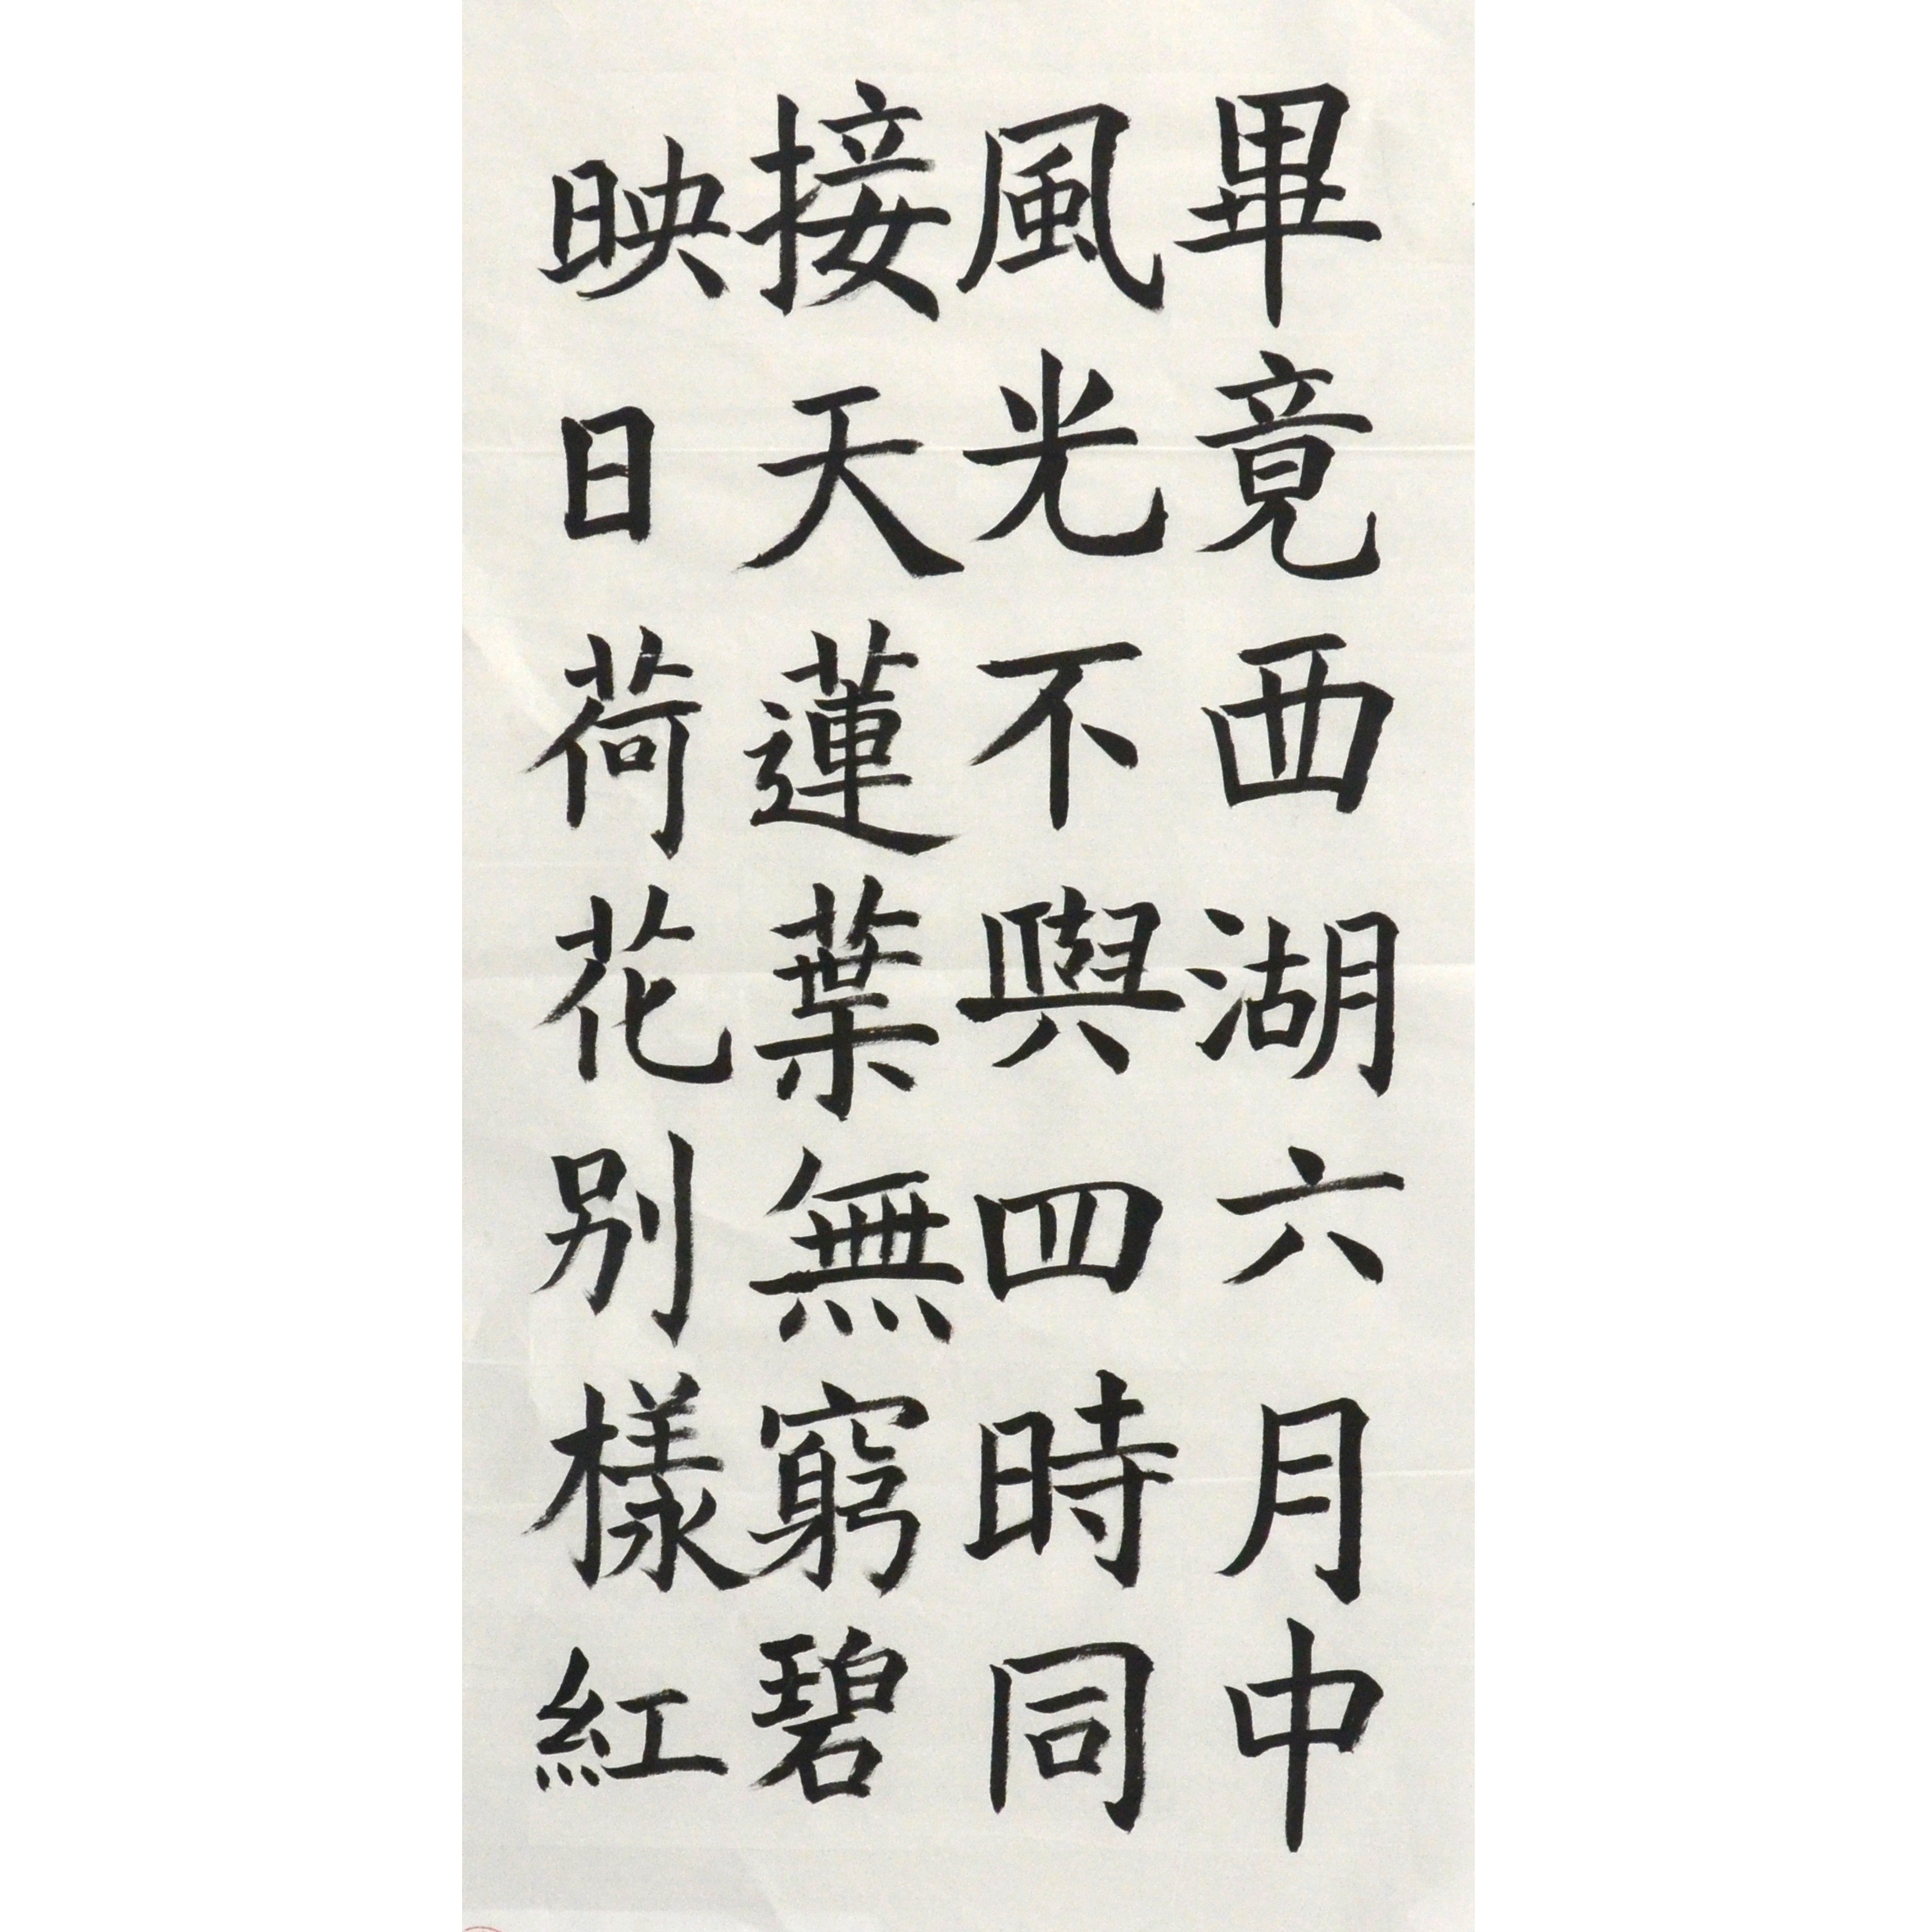 畢竟西湖六月中
風光不與四時同
接天蓮葉無窮碧
映日荷花别樣紅